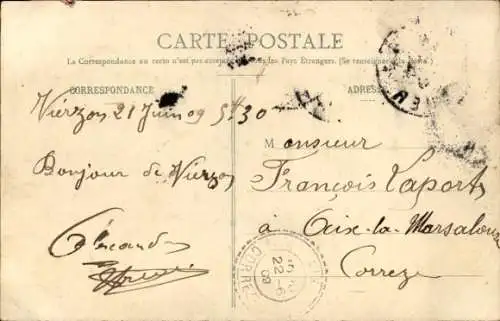 CARTE POSTALE
La Correspondance au recto n'est pas acceptée par tous les Pays Étrangers. (Se renseigner à la Poste.)
CORRESPONDANCE
ADRESSE
Vierzon 21 Juin 09 5h30
Bonjour de Vierzon
Monsieur
François Laporte
à Aix-la-Marsalouse
Corrèze
22-6
09
CORRÈZE